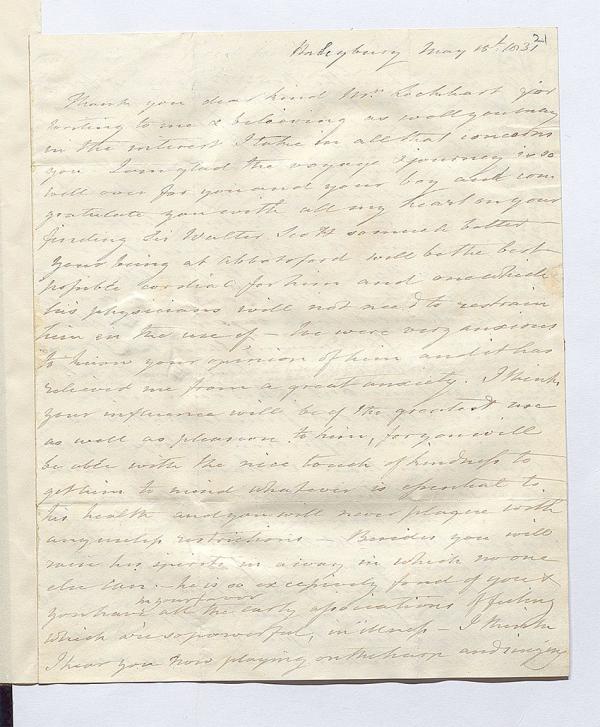 21
Haleybury May 15t. 1831
Thank you dear kind Mrs. Lockhart for
writing to me & believing as well you may
in the interest I take in all that concerns
you I am glad the voyage & journey is so
well over for you and your boy and con
gratulate you with all my heart on your
finding Sir Walter Scott so much better
Your being at Abbotsford will be the best
possible cordial for him and one which
his physicians will not need to restrain
him in the use of – We were very anxious
to know your opinion of him and it has
relieved me from a great anxiety. I think
your influence will be of the greatest use
as well as pleasure to him, for you will
be able with the nice touch of kindness to
get him to mind whatever is essential to
his health and you will never plague with
any useless restrictions – Besides you will
raise his spirits in a way in which no one
else can – he is so excessively fond of you &
you have in your favor all the early associations of feeling
which are so powerful, in illness – I think
I hear you now playing on the harp and singing